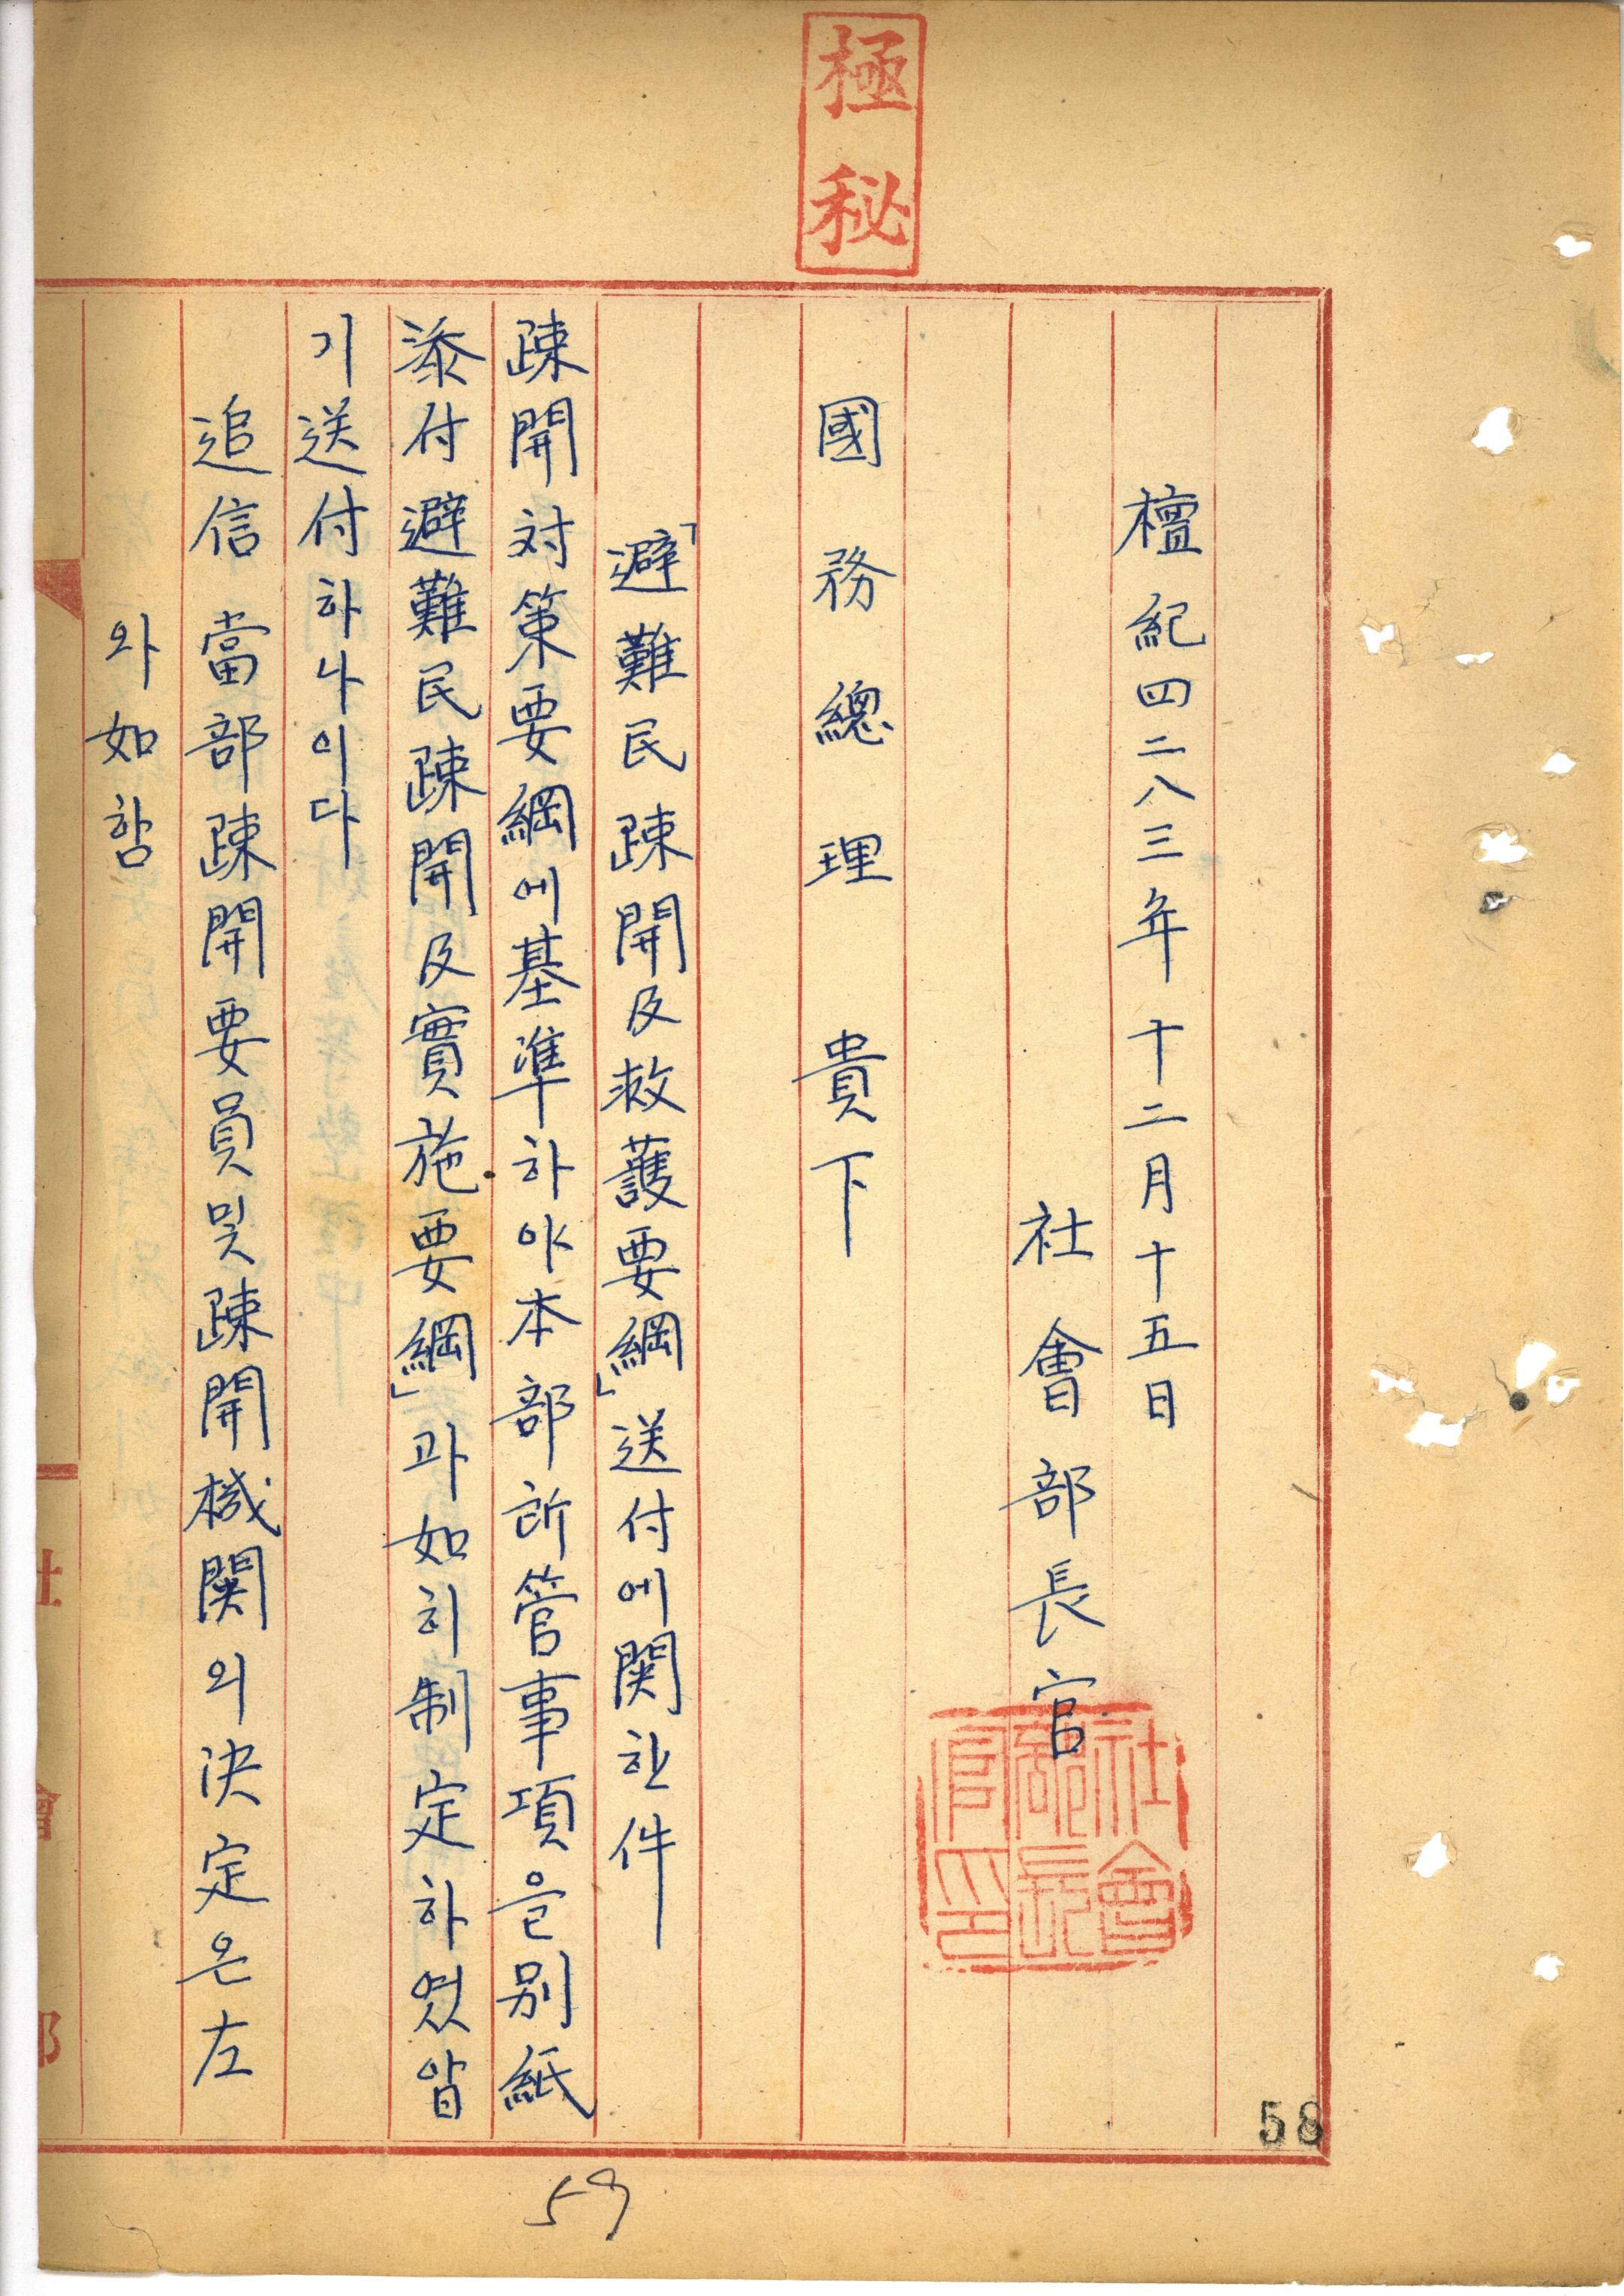 極秘
檀紀四二八三年十二月十五日
社會部長官
社會部長官印
國務總理 貴下
「避難民疎開及救護要綱」送付에関한件
疎開対策要綱에基準하야本部所管事項을別紙
添付避難民疎開及實施要綱」과如히制定하였압
기送付하나이다
追信 當部疎開要員및疎開機関의決定은左
와如함
58
59